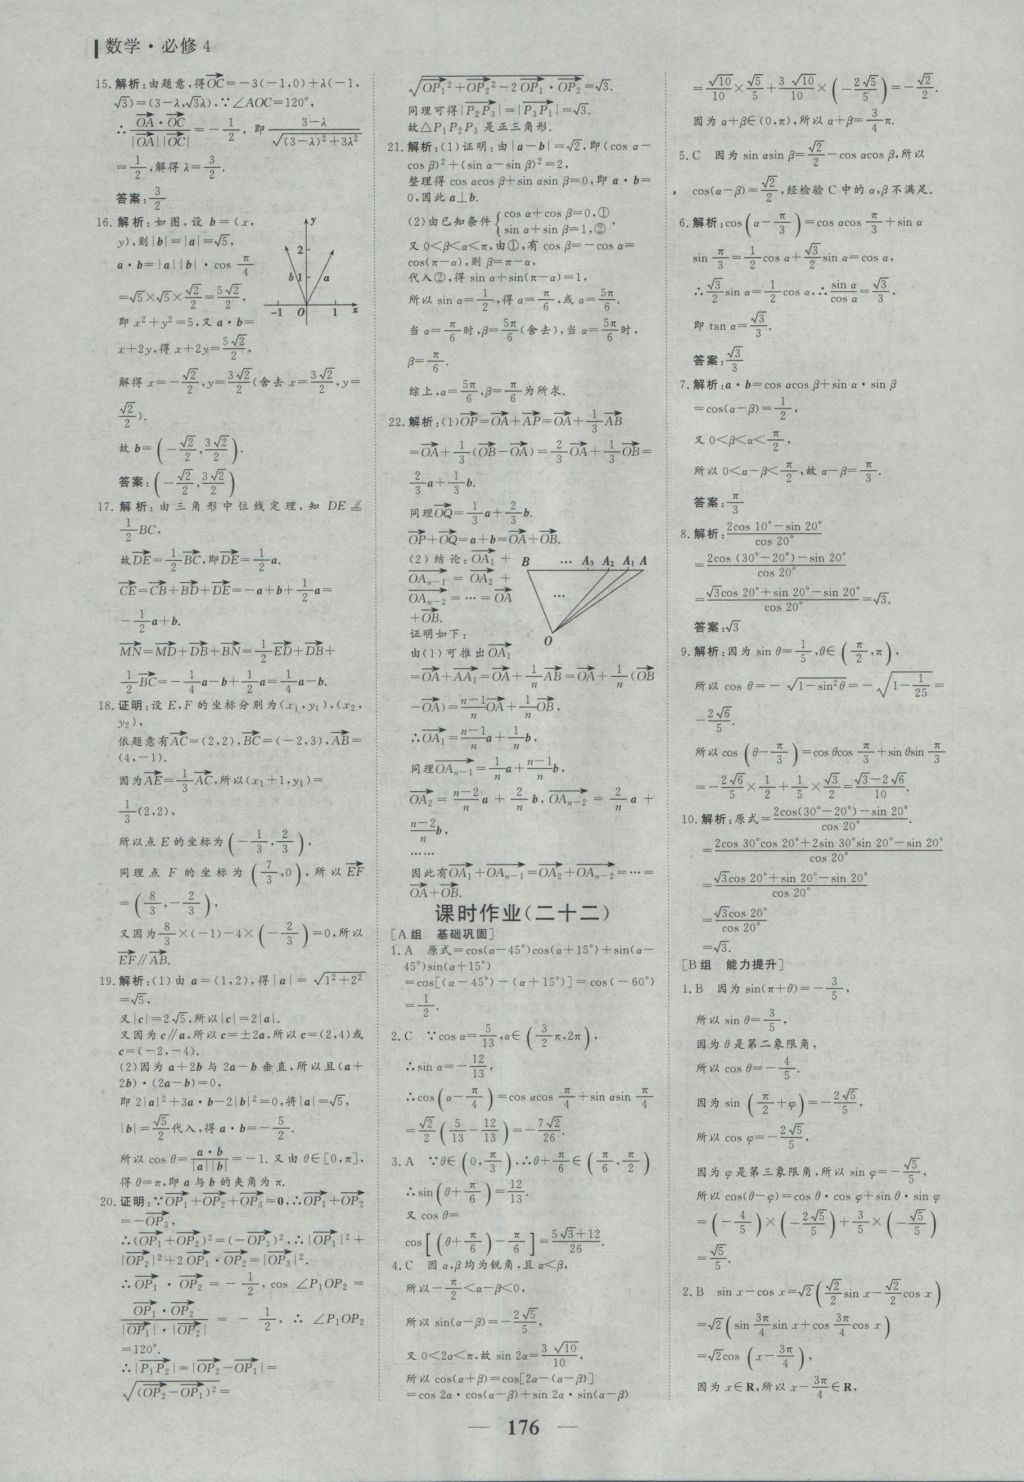 数学·必修4
15. 解析:由题意,得OC=-3(-1,0)+λ(-1,
√3)=(3-λ,√3λ),∵∠AOC=120°,
∴OA·OC/|OA||OC|=-1/2, 即 3-λ/√((3-λ)²+3λ²)
=1/2,解得λ=3/2.
答案:3/2
16. 解析:如图,设 b=(x,
y),则|b|=|a|=√5,
a·b=|a||b|·cos π/4
=√5×√5×√2/2=5√2/2,
即 x²+y²=5,又 a·b=
x+2y,得 x+2y=5√2/2,
解得 x=-√2/2,y=3√2/2(舍去 x=3√2/2,y=
√2/2).
故 b=(-√2/2,3√2/2).
答案:(-√2/2,3√2/2)
y
2
b 1 a
-1 O 1 x
17. 解析:由三角形中位线定理,知 DE ∥
1/2BC,
故DE=1/2BC,即DE=1/2a.
CE=CB+BD+DE=-a+b+1/2a=
-1/2a+b.
MN=MD+DB+BN=1/2ED+DB+
1/2BC=-1/4a-b+1/2a=1/4a-b.
18. 证明:设 E,F 的坐标分别为(x₁,y₁),(x₂,
y₂),
依题意有AC=(2,2),BC=(-2,3),AB=
(4,-1).
因为AE=1/3AC,所以(x₁+1,y₁)=
1/3(2,2),
所以点 E 的坐标为(-1/3,2/3),
同理点 F 的坐标为(7/3,0),所以EF
=(8/3,-2/3),
又因为8/3×(-1)-4×(-2/3)=0,所以
EF∥AB.
19. 解析:(1)由 a=(1,2),得|a|=√(1²+2²)
=√5,
又|c|=2√5,所以|c|=2|a|.
又因为 c∥a,所以 c=±2a,所以 c=(2,4)或
c=(-2,-4).
(2)因为 a+2b 与 2a-b 垂直,所以且(a+
2b)·(2a-b)=0,
即 2|a|²+3a·b-2|b|²=0,将|a|=√5,
|b|=√5/2代入,得 a·b=-5/2.
所以 cos θ=a·b/|a||b|=-1. 又由 θ∈[0,π],
得 θ=π,即 a 与 b 的夹角为 π.
20. 证明:∵OP₁+OP₂+OP₃=0,∴OP₁+OP₂
=-OP₃,
∴(OP₁+OP₂)²=(-OP₃)²,∴|OP₁|²+
|OP₂|²+2 OP₁·OP₂=|OP₃|².
∴OP₁·OP₂=-1/2,cos ∠P₁OP₂=
OP₁·OP₂/|OP₁|·|OP₂|=-1/2,∴∠P₁OP₂
=120°.
∴|P₁P₂|=|OP₂-OP₁|=
√((OP₂-OP₁)²)=
√(OP₁²+OP₂²-2 OP₁·OP₂)=√3.
同理可得|P₂P₃|=|P₃P₁|=√3.
故△P₁P₂P₃ 是正三角形.
21. 解析:(1)证明:由|a-b|=√2,即(cos α-
cos β)²+(sin α-sin β)²=2,
整理得 cos αcos β+sin αsin β=0,即 a·b=
0,因此 a⊥b.
(2)由已知条件{cos α+cos β=0,①
sin α+sin β=1,②
又 0<β<α<π,由①,有 cos β=-cos α=
cos(π-α),则 β=π-α,
代入②,得 sin α+sin(π-α)=1,
所以 sin α=1/2,得 α=π/6,或 α=5π/6.
当 α=π/6时,β=5π/6(舍去),当 α=5π/6时,
β=π/6.
综上,α=5π/6,β=π/6为所求.
22. 解析:(1)OP=OA+AP=OA+1/3AB
=OA+1/3(OB-OA)=2/3OA+1/3OB=
2/3a+1/3b.
同理OQ=1/3a+2/3b.
OP+OQ=a+b=OA+OB.
(2)结论:OA₁+
OAₙ₋₁=OA₂+
OAₙ₋₂=…=OA
+OB.
证明如下:
由(1)可推出OA₁
B … A₃ A₂ A₁ A
…
O
=OA+AA₁=OA+1/nAB=OA+1/n(OB
-OA)=n-1/nOA+1/nOB,
∴OA₁=n-1/na+1/nb,
同理OAₙ₋₁=1/na+n-1/nb,
OA₂=n-2/na+2/nb,OAₙ₋₂=2/na+
n-2/nb,
……
因此有OA₁+OAₙ₋₁=OA₂+OAₙ₋₂=…=
OA+OB.
课时作业(二十二)
[A组 基础巩固]
1. A 原式=cos(α-45°)cos(α+15°)+sin(α-
45°)sin(α+15°)
=cos[(α-45°)-(α+15°)]=cos(-60°)
=1/2.
2. C ∵cos α=5/13,α∈(3/2π,2π),
∴sin α=-12/13,
∴cos(α-π/4)=cos αcos π/4+sin αsin π/4
=√2/2(5/13-12/13)=-7√2/26.
3. A ∵θ∈(0,π/3),∴θ+π/6∈(π/6,π/2)
∴sin(θ+π/6)=12/13.
又 cos θ=
cos[(θ+π/6)-π/6]=5√3+12/26.
4. C 因 α,β 均为锐角,且 α<β,
所以-π/2<α-β<0,
所以 sin(α-β)=-2√5/5,
又 0<2α<π,故 sin 2α=3√10/10,
所以 cos(α+β)=cos[2α-(α-β)]
=cos 2α·cos(α-β)+sin 2α·sin(α-β)
=√10/10×√5/5+3√10/10×(-2√5/5)=-√2/2.
因为 α+β∈(0,π),所以 α+β=3/4π.
5. C 因为 sin αsin β=√2/2-cos αcos β,所以
cos(α-β)=√2/2,经检验 C 中的 α,β 不满足.
6. 解析:cos(α-π/3)=cos αcos π/3+sin α
sin π/3=1/2cos α+√3/2sin α=cos α,
∴√3/2sin α=1/2cos α,∴sin α/cos α=√3/3,
即 tan α=√3/3.
答案:√3/3
7. 解析:a·b=cos αcos β+sin α·sin β
=cos(α-β)=1/2,
又 0<β<α<π/2,
所以 0<α-β<π/2,故 α-β=π/3.
答案:π/3
8. 解析:2cos 10°-sin 20°/cos 20°
=2cos (30°-20°)-sin 20°/cos 20°
=√3cos 20°+sin 20°-sin 20°/cos 20°=√3.
答案:√3
9. 解析:因为 sin θ=1/5,θ∈(π/2,π),
所以 cos θ=-√(1-sin²θ)=-√(1-1/25)=
-2√6/5.
所以 cos(θ-π/3)=cos θcos π/3+sin θsin π/3
=-2√6/5×1/2+1/5×√3/2=√3-2√6/10.
10. 解析:原式=2cos(30°-20°)-sin 20°/cos 20°.
=2cos 30°cos 20°+2sin 30°sin 20°-sin 20°/cos 20°
=√3cos 20°+sin 20°-sin 20°/cos 20°
=√3cos 20°/cos 20°
=√3.
[B组 能力提升]
1. B 因为 sin(π+θ)=-3/5,
所以 sin θ=3/5,
因为 θ 是第二象限角,
所以 cos θ=-4/5.
因为 sin(π/2+φ)=-2√5/5,
所以 cos φ=-2√5/5,
因为 φ 是第三象限角,所以 sin φ=-√5/5,
所以 cos(θ-φ)=cos θ·cos φ+sin θ·sin φ
=(-4/5)×(-2√5/5)+3/5×(-√5/5)
=√5/5.
2. B sin x-cos x=√2(√2/2sin x-√2/2cos x)
=√2(sin 3π/4sin x+cos 3π/4cos x)
=√2cos(x-3π/4),
因为 x∈R,所以 x-3π/4∈R,
— 176 —